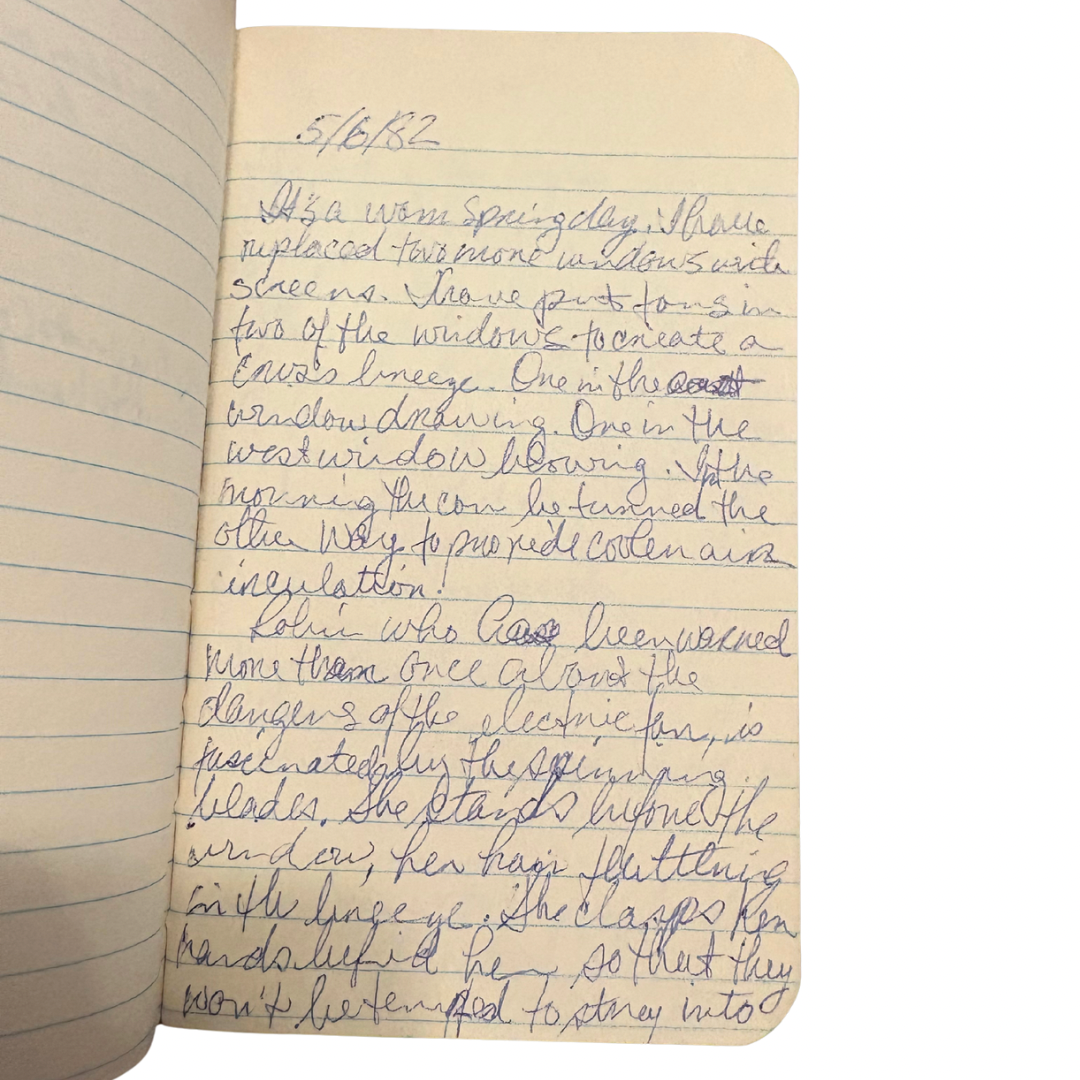 5/6/82
It's a warm Spring day. I have
replaced two more windows with
screens. I have put fans in
two of the windows to create a
cross breeze. One in the east
window drawing. One in the
west window blowing. In the
morning the can be turned the
other way to provide cooler air
circulation.
Robin who has been warned
more than once about the
dangers of the electric fan, is
fascinated by the spinning
blades. She stands before the
window, her hair fluttering
in the breeze. She clasps her
hands behind her so that they
won't be tempted to stray into